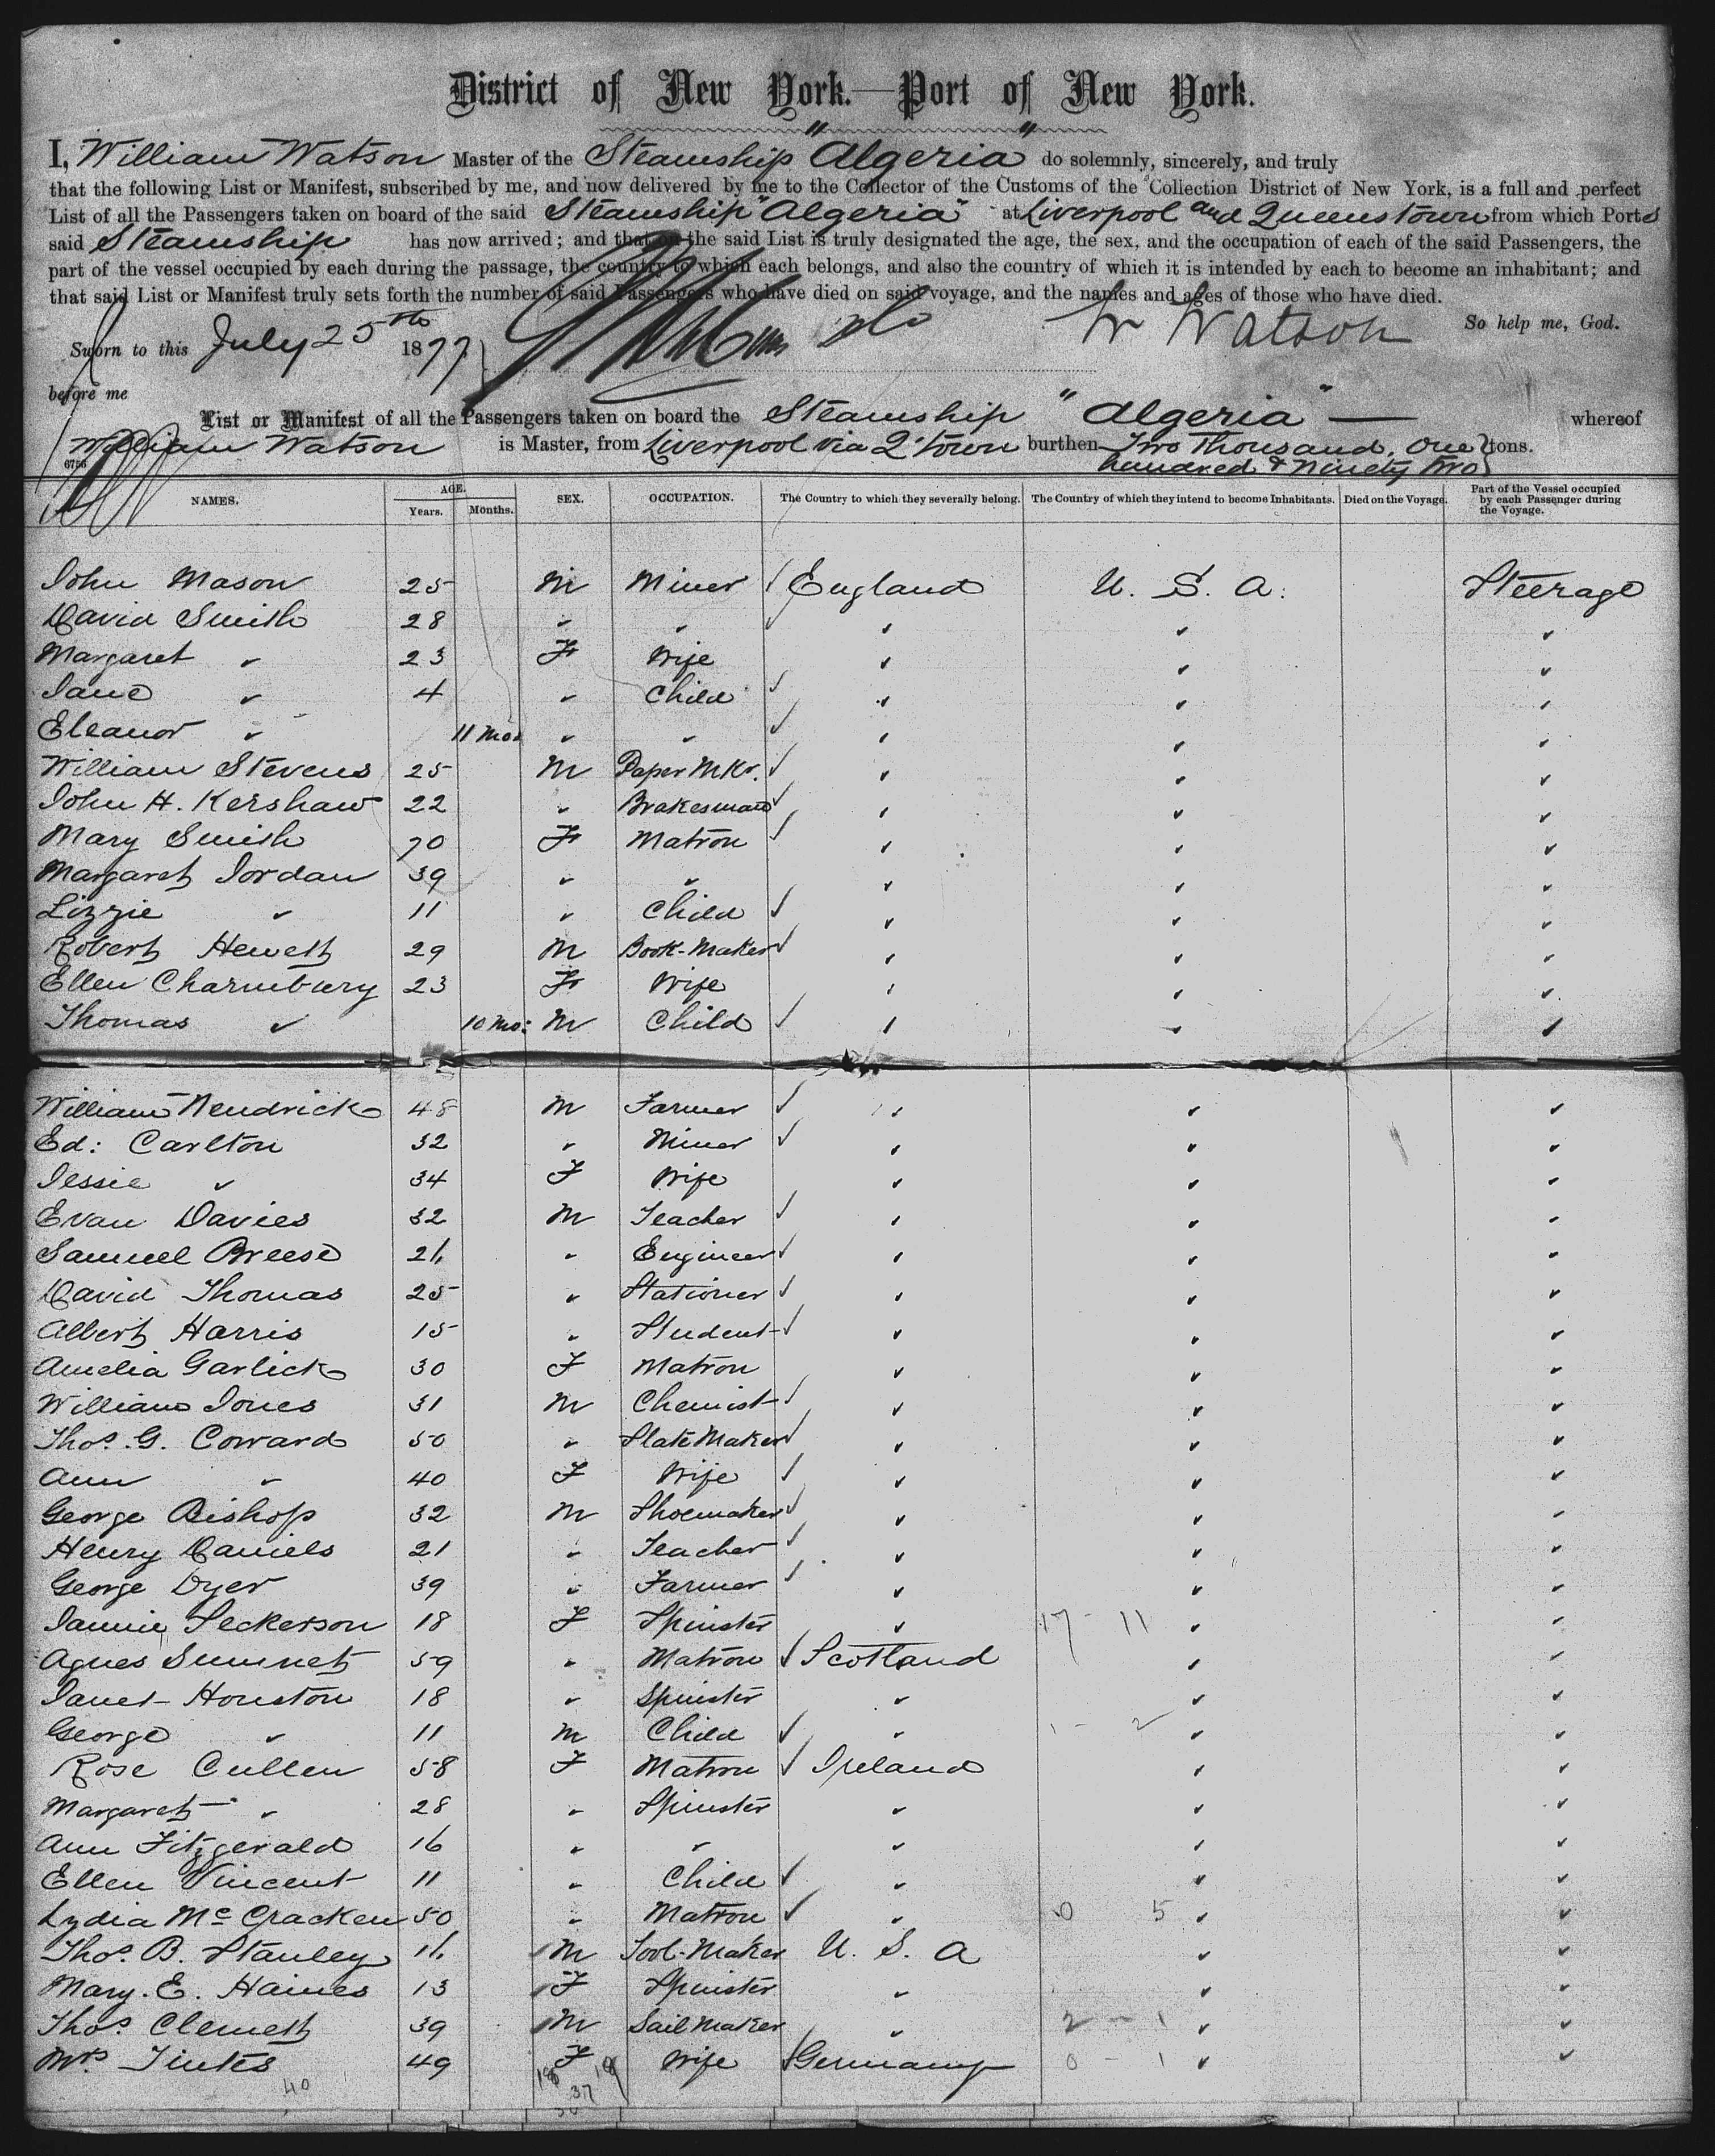 District of New York.—Port of New York.
I, William Watson Master of the Steamship "Algeria" do solemnly, sincerely, and truly
that the following List or Manifest, subscribed by me, and now delivered by me to the Collector of the Customs of the Collection District of New York, is a full and perfect
List of all the Passengers taken on board of the said Steamship "Algeria" at Liverpool and Queenstown from which Ports
said Steamship has now arrived; and that on the said List is truly designated the age, the sex, and the occupation of each of the said Passengers, the
part of the vessel occupied by each during the passage, the country to which each belongs, and also the country of which it is intended by each to become an inhabitant; and
that said List or Manifest truly sets forth the number of said Passengers who have died on said voyage, and the names and ages of those who have died.
So help me, God.
Sworn to this July 25th 1877 W Watson
before me
List or Manifest of all the Passengers taken on board the Steamship "Algeria" — whereof
William Watson is Master, from Liverpool via Q'town burthen Two Thousand, One hundred & Ninety Two tons.
6756
NAMES. AGE. Years. Months. SEX. OCCUPATION. The Country to which they severally belong. The Country of which they intend to become Inhabitants. Died on the Voyage. Part of the Vessel occupied by each Passenger during the Voyage.
John Mason 25 M Miner England U. S. A. Steerage
David Smith 28 " " " " "
Margaret " 23 F Wife " " "
Jane " 4 " Child " " "
Eleanor " 11 Mos " " " " "
William Stevens 25 M Paper Mkr. " " "
John H. Kershaw 22 " Brakesman " " "
Mary Smith 70 F Matron " " "
Margaret Jordan 39 " " " " "
Lizzie " 11 " Child " " "
Robert Hewett 29 M Book-Maker " " "
Ellen Charnbury 23 F Wife " " "
Thomas " 10 Mo: M Child " " "
William Kendrick 48 M Farmer " " "
Ed: Carlton 32 " Miner " " "
Jessie " 34 F Wife " " "
Evan Davies 32 M Teacher " " "
Samuel Breese 26 " Engineer " " "
David Thomas 25 " Stationer " " "
Albert Harris 15 " Student " " "
Amelia Garlick 30 F Matron " " "
William Jones 31 M Chemist " " "
Thos. G. Coward 50 " Slate Maker " " "
Ann " 40 F Wife " " "
George Bishop 32 M Shoemaker " " "
Henry Daniels 21 " Teacher " " "
George Dyer 39 " Farmer " " "
Jannie Seckerson 18 F Spinster " 17 - 11 " "
Agnes 59 " Matron Scotland " "
Janet Houston 18 " Spinster " " "
George " 11 M Child " 1 - 2 " "
Rose Cullen 58 F Matron Ireland " "
Margaret " 28 " Spinster " " "
Ann Fitzgerald 16 " " " " "
Ellen Vincent 11 " Child " " "
Lydia Mc Cracken 50 " Matron " 0 5 " "
Thos. B. Stanley 16 M Tool-Maker U. S. A " "
Mary. E. Haines 13 F Spinster " " "
Thos. Clemett 39 M Sail Maker " 2 - 1 " "
Mrs. 49 F Wife Germany 0 - 1 " "
40 37